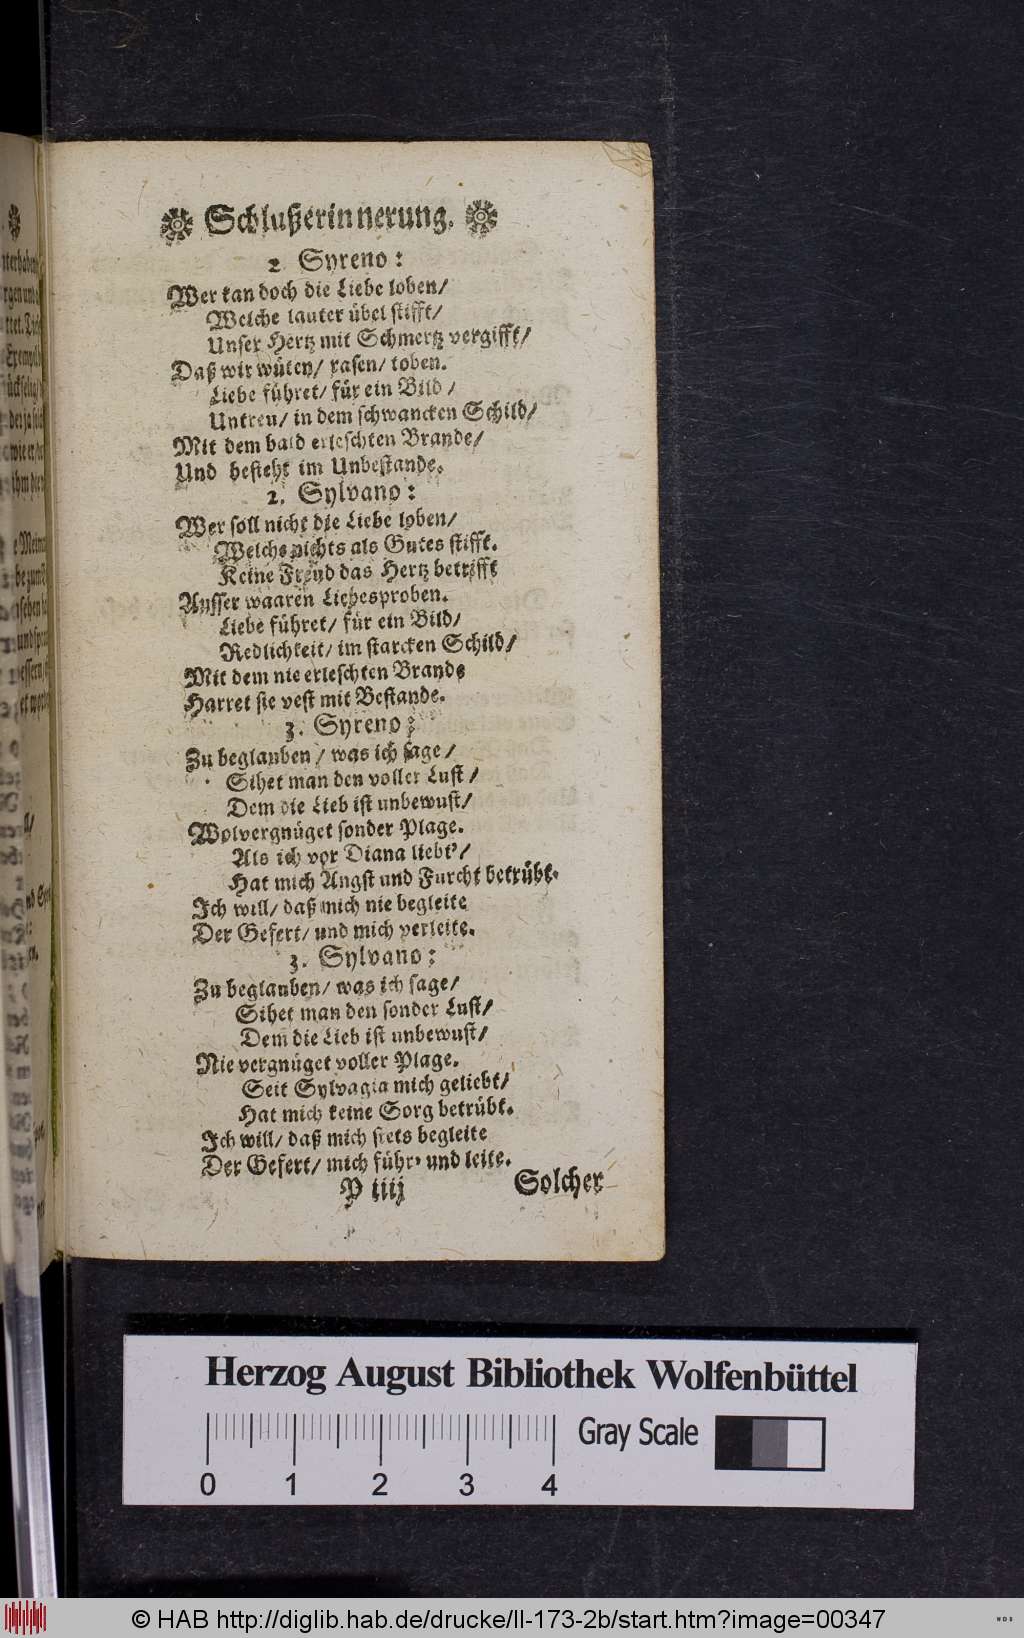 Schlußerinnerung.
2 Syreno:
Wer kan doch die Liebe loben/
Welche lauter übel stifft/
Unser Hertz mit Schmertz vergifft/
Daß wir wüten/ rasen/ toben.
Liebe führet/ für ein Bild/
Untreu/ in dem schwancken Schild/
Mit dem bald erleschten Brande/
Und besteht im Unbestande.
2. Sylvano:
Wer soll nicht die Liebe loben/
Welche nichts als Gutes stifft.
Keine Freud das Hertz betrifft
Ausser waaren Liebesproben.
Liebe führet/ für ein Bild/
Redlichkeit/ im starcken Schild/
Mit dem nie erleschten Brande
Harret sie vest mit Bestande.
3. Syreno:
Zu beglauben/ was ich sage/
Sihet man den voller Lust/
Dem die Lieb ist unbewust/
Wolvergnüget sonder Plage.
Als ich vor Diana liebt'/
Hat mich Angst und Furcht betrübt.
Ich will/ daß mich nie begleite
Der Gefert/ und mich verleite.
3. Sylvano:
Zu beglauben/ was ich sage/
Sihet man den sonder Lust/
Dem die Lieb ist unbewust/
Nie vergnüget voller Plage.
Seit Sylvagia mich geliebt/
Hat mich keine Sorg betrübt.
Ich will/ daß mich stets begleite
Der Gefert/ mich führ' und leite.
P iiij Solcher
Herzog August Bibliothek Wolfenbüttel
Gray Scale
0 1 2 3 4
© HAB http://diglib.hab.de/drucke/ll-173-2b/start.htm?image=00347
WDB